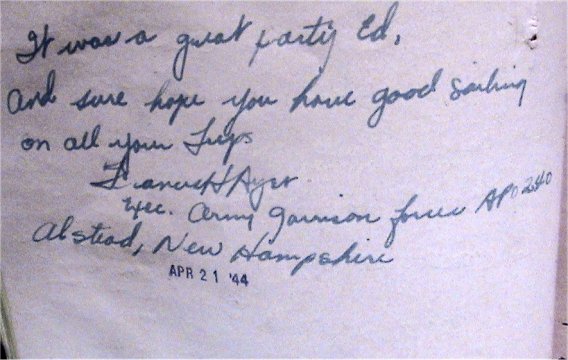 It was a great party Ed,
And sure hope you have good sailing
on all your Trips
Francis H Ayer
Exec. Army Garrison Force APO 240
Alstead, New Hampshire
APR 21 '44